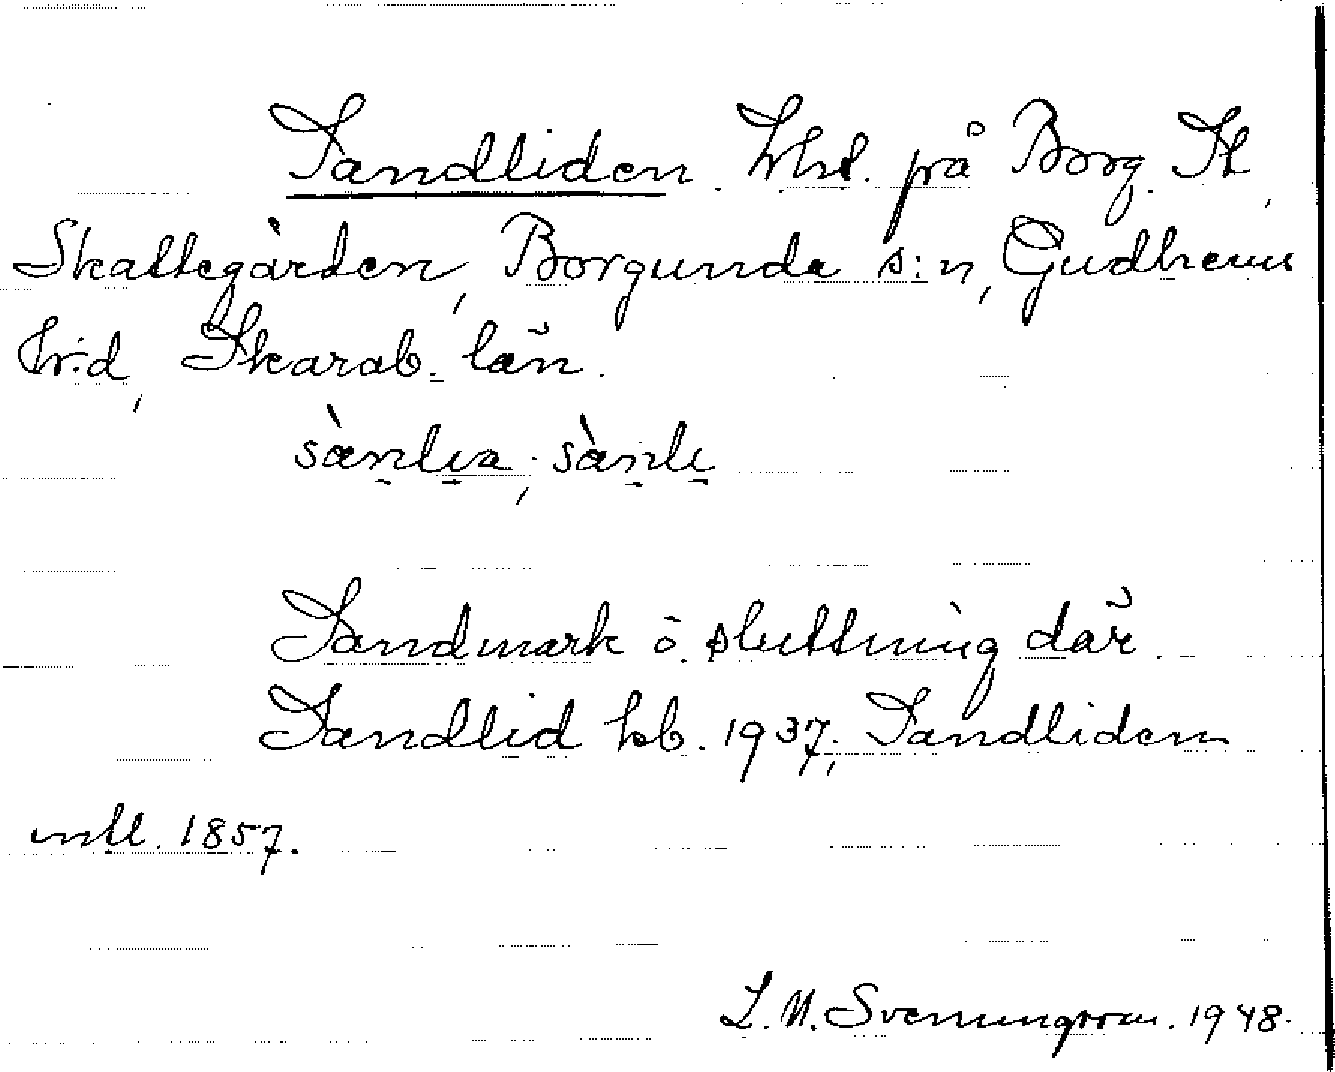 Sandliden. Lht. på Borg. St.
Skattegården, Borgunda s:n, Gudhems
h:d, Skarab. län.
sànlia; sànli
Sandmark o. sluttning där
Sandlid kb. 1937; Sandliden
mtl. 1857.
L. M. Svenungsson. 1948.